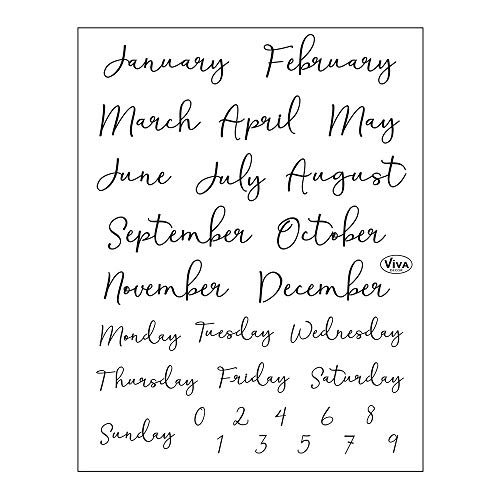 January February
March April May
June July August
September October
VIVA
DECOR
November December
Monday Tuesday Wednesday
Thursday Friday Saturday
Sunday 0 2 4 6 8
1 3 5 7 9